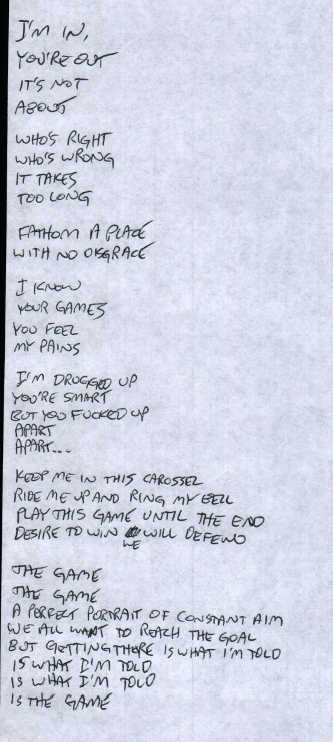 I'M IN,
YOU'RE OUT
IT'S NOT
ABOUT
WHO'S RIGHT
WHO'S WRONG
IT TAKES
TOO LONG
FATHOM A PLACE
WITH NO DISGRACE
I KNOW
YOUR GAMES
YOU FEEL
MY PAINS
I'M DRUGGED UP
YOU'RE SMART
BUT YOU FUCKED UP
APART
APART...
KEEP ME IN THIS CAROSSEL
RIDE ME UP AND RING MY BELL
PLAY THIS GAME UNTIL THE END
DESIRE TO WIN WE WILL DEFEND
THE GAME
THE GAME
A PERFECT PORTRAIT OF CONSTANT AIM
WE ALL WANT TO REACH THE GOAL
BUT GETTING THERE IS WHAT I'M TOLD
IS WHAT I'M TOLD
IS WHAT I'M TOLD
IS THE GAME